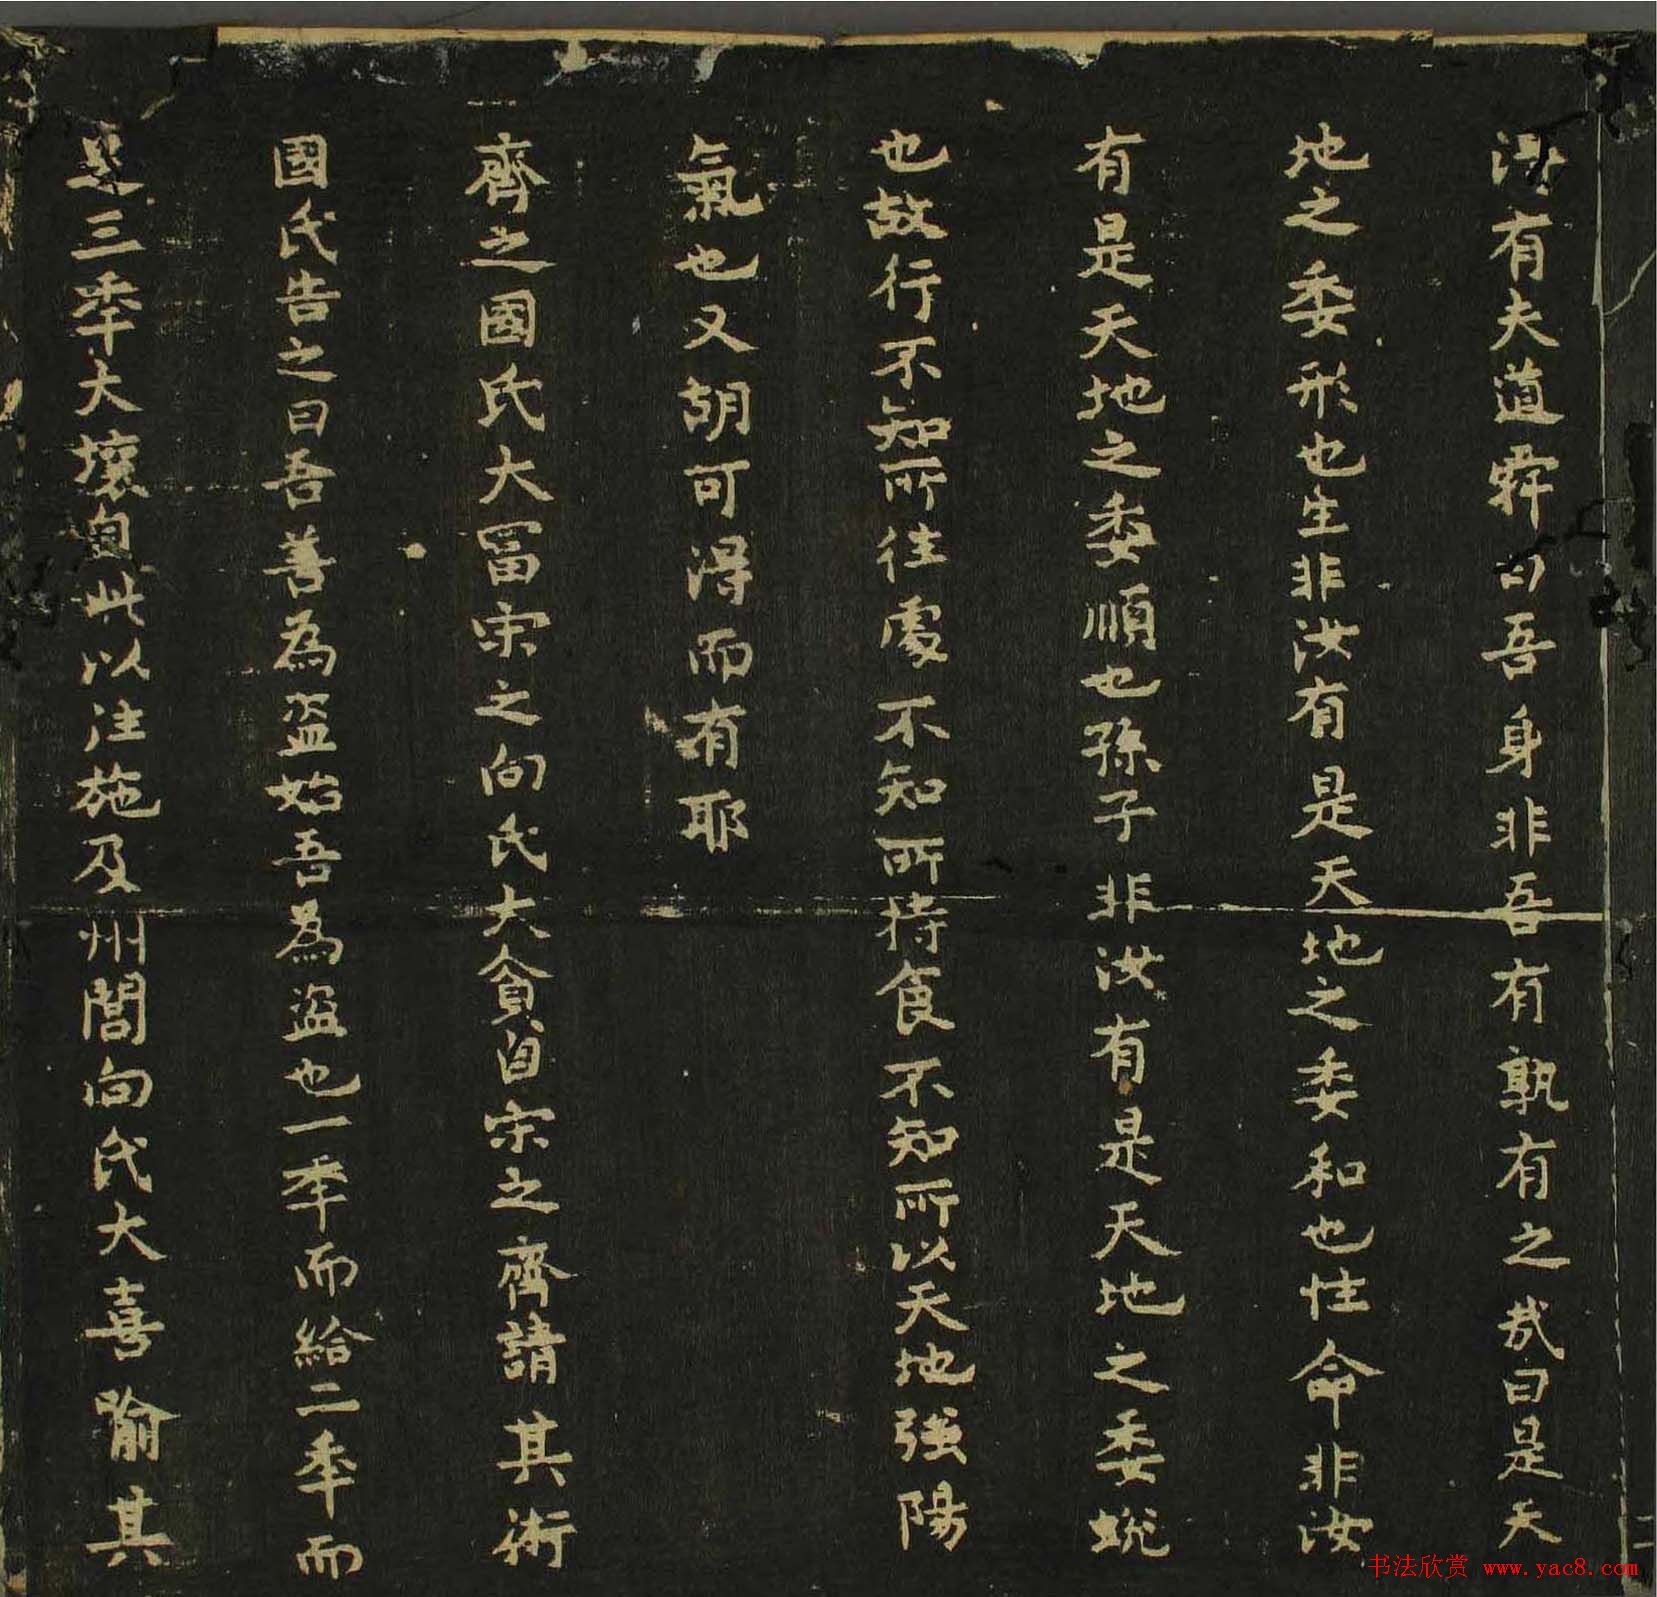 淂有夫道舜曰吾身非吾有孰有之哉曰是天
地之委形也生非汝有是天地之委和也性命非汝
有是天地之委順也孫子非汝有是天地之委蛻
也故行不知所往處不知所持食不知所以天地強陽
氣也又胡可淂而有耶
齊之國氏大冨宋之向氏大貧自宋之齊請其術
國氏告之曰吾善為盗始吾為盗也一秊而給二秊而
足三秊大壤自此以往施及州閭向氏大喜喻其
二
书法欣赏 www.yac8.com